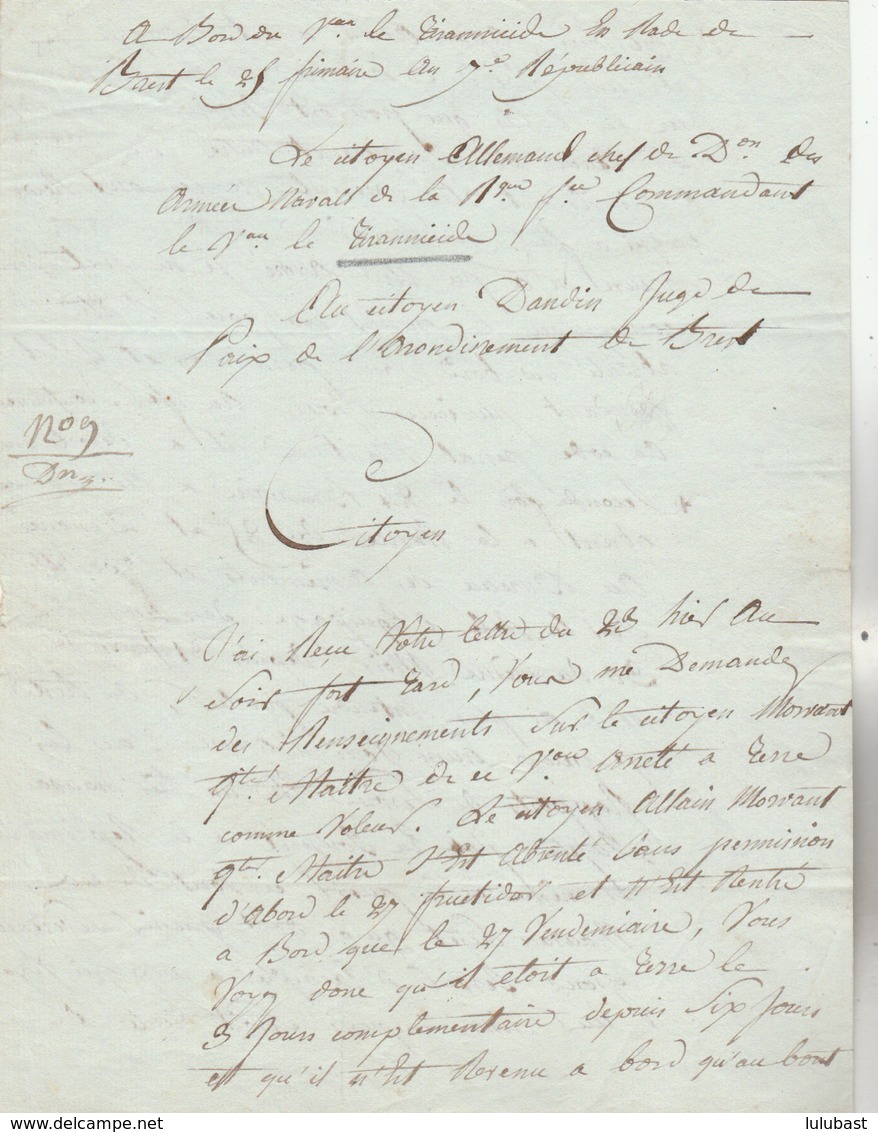 A Bord du V.au le Tirannicide En Rade de
Brest le 25 frimaire An 7.e Républicain
Le citoyen Allemand chef de D.on des
Armées Navales de la R.que f.se Commandant
le V.au le Tirannicide
Au citoyen Dandin Juge de
Paix de l'Arondissement de Brest
N.o 9
Citoyen
J'ai Reçu Votre lettre du 23 hier Au
Soir fort Tard, Vous me Demandez
des Renseignements Sur le citoyen Morvant
q.tr Maitre de ce V.au Arreté a Terre
comme Voleur. Le citoyen Allain Morvant
q.tr Maitre s'Est Absenté sans permission
d'Abord le 27 fructidor et n'Est Rentré
a Bord que le 27 Vendemiaire, Vous
Voyez donc qu'il etoit a Terre le
3 Jours complementaire depuis Six Jours
et qu'il n'Est Revenu a bord qu'au bout
lulubast